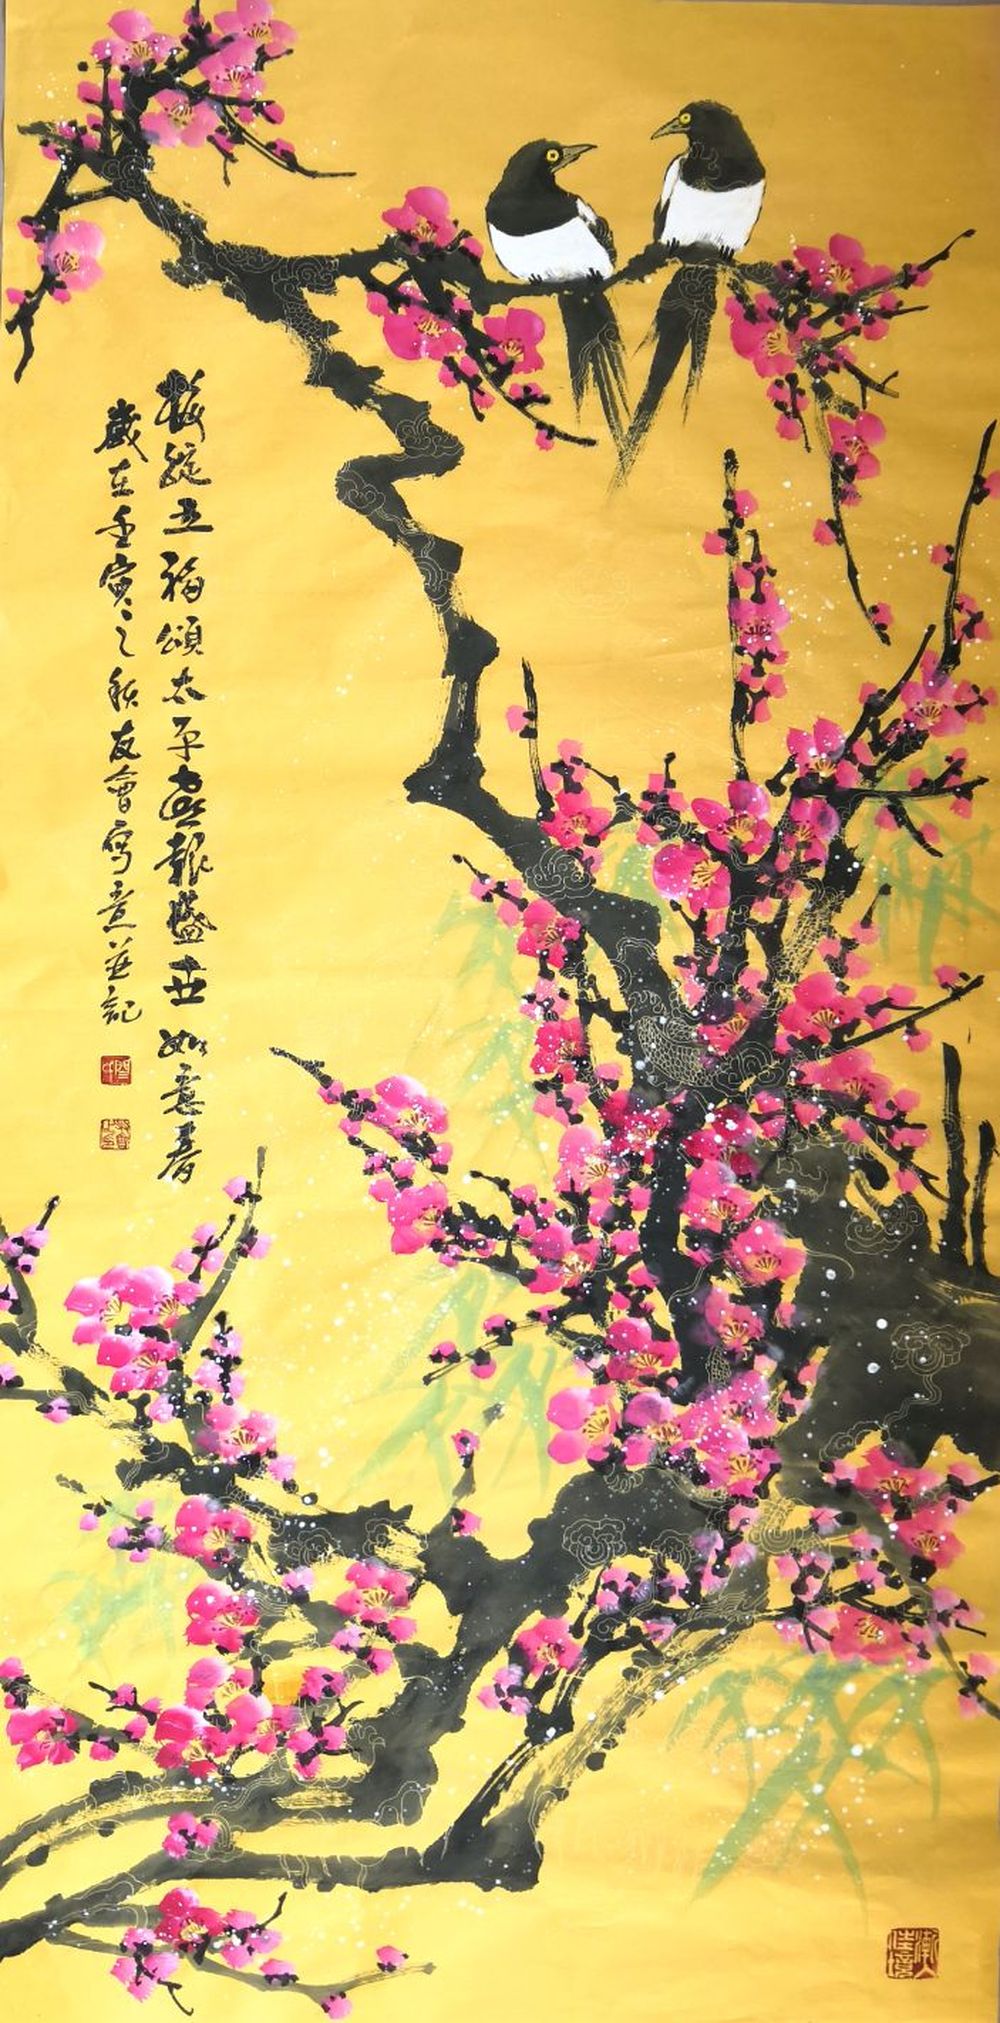 梅綻五福頌太平喜報盛世如意春
歲在壬寅之秋友會寫意並記
漸入佳境